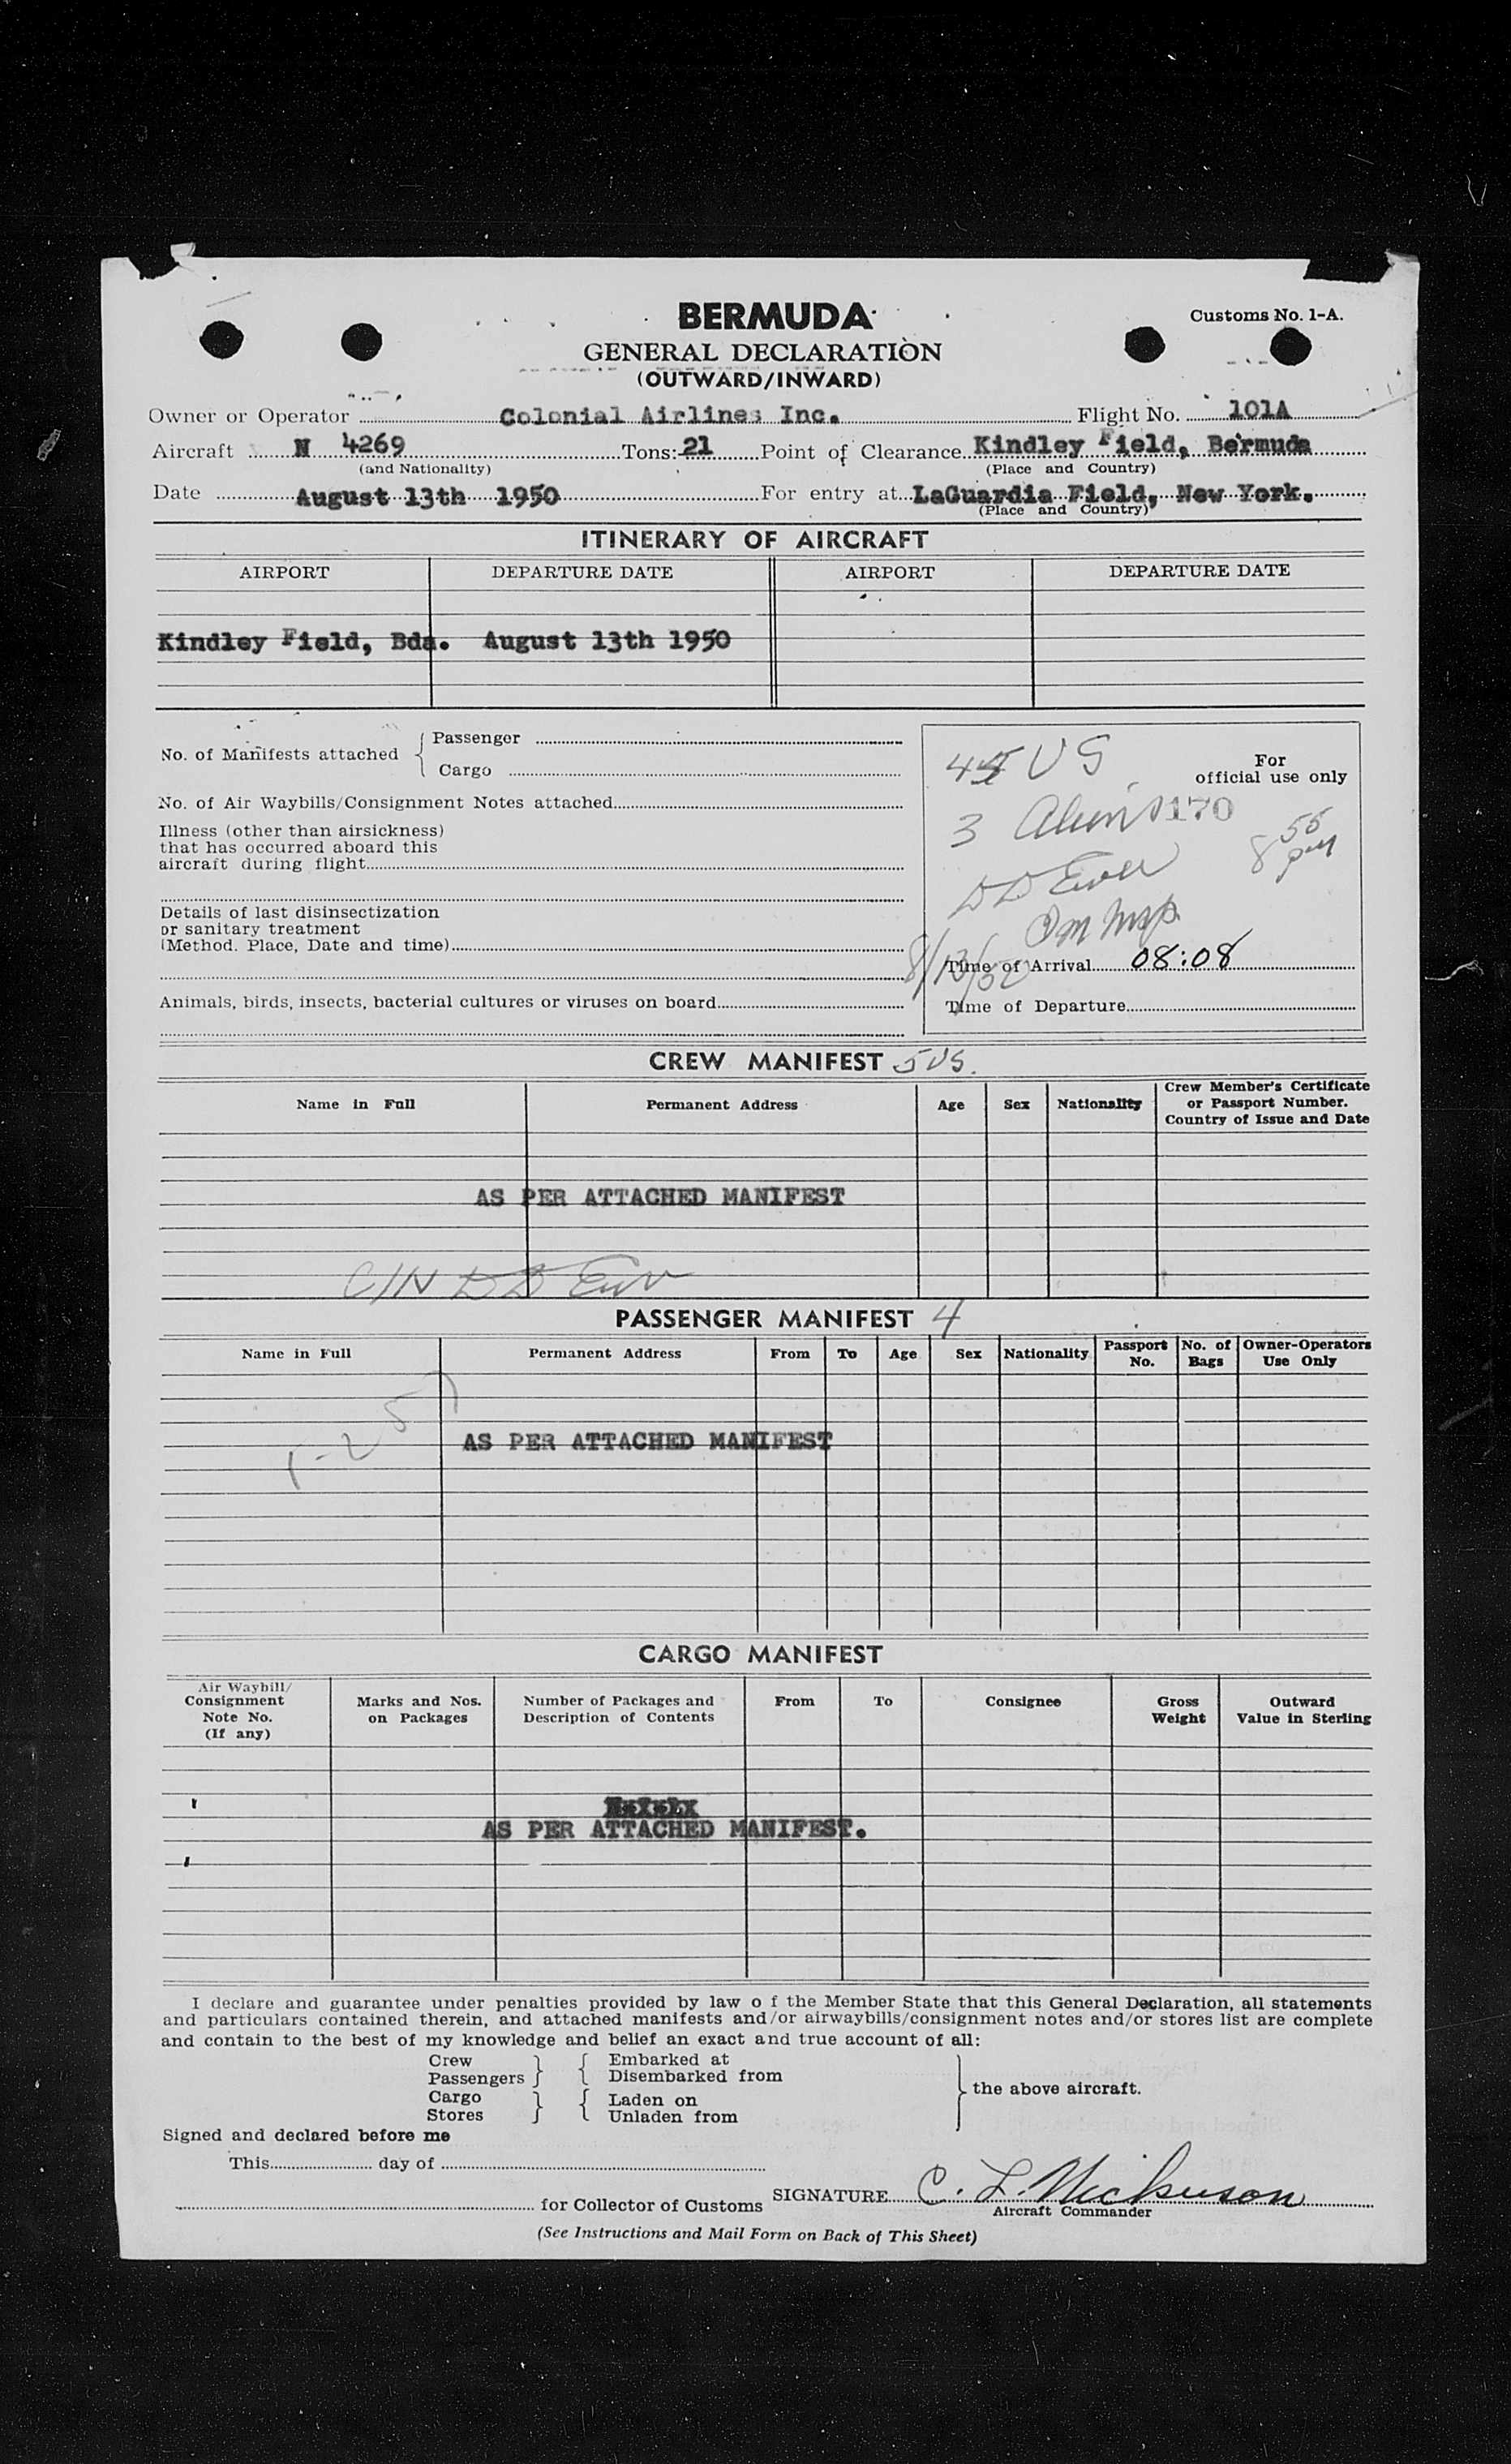 BERMUDA
Customs No. 1-A.
GENERAL DECLARATION
(OUTWARD/INWARD)
Owner or Operator Colonial Airlines Inc. Flight No. 101A
Aircraft N 4269 Tons: 21 Point of Clearance Kindley Field, Bermuda
(and Nationality) (Place and Country)
Date August 13th 1950 For entry at LaGuardia Field, New York.
(Place and Country)
ITINERARY OF AIRCRAFT
AIRPORT DEPARTURE DATE AIRPORT DEPARTURE DATE
Kindley Field, Bda. August 13th 1950
No. of Manifests attached Passenger
Cargo
No. of Air Waybills/Consignment Notes attached
Illness (other than airsickness)
that has occurred aboard this
aircraft during flight
Details of last disinsectization
or sanitary treatment
(Method. Place, Date and time)
Animals, birds, insects, bacterial cultures or viruses on board
US
For
official use only
3 0170
8 55 pm
DD
8/13/50
Time of Arrival 08:08
Time of Departure
CREW MANIFEST 5 US.
Name in Full Permanent Address Age Sex Nationality Crew Member's Certificate
or Passport Number.
Country of Issue and Date
AS PER ATTACHED MANIFEST
C/N DD
PASSENGER MANIFEST 4
Name in Full Permanent Address From To Age Sex Nationality Passport No. No. of Bags Owner-Operators Use Only
AS PER ATTACHED MANIFEST
CARGO MANIFEST
Air Waybill/
Consignment
Note No.
(If any)
Marks and Nos.
on Packages
Number of Packages and
Description of Contents
From To Consignee Gross
Weight
Outward
Value in Sterling
AS PER ATTACHED MANIFEST.
I declare and guarantee under penalties provided by law o f the Member State that this General Declaration, all statements
and particulars contained therein, and attached manifests and/or airwaybills/consignment notes and/or stores list are complete
and contain to the best of my knowledge and belief an exact and true account of all:
Crew Embarked at
Passengers Disembarked from
the above aircraft.
Cargo Laden on
Stores Unladen from
Signed and declared before me
This day of
for Collector of Customs SIGNATURE C. L. Nickerson
Aircraft Commander
(See Instructions and Mail Form on Back of This Sheet)